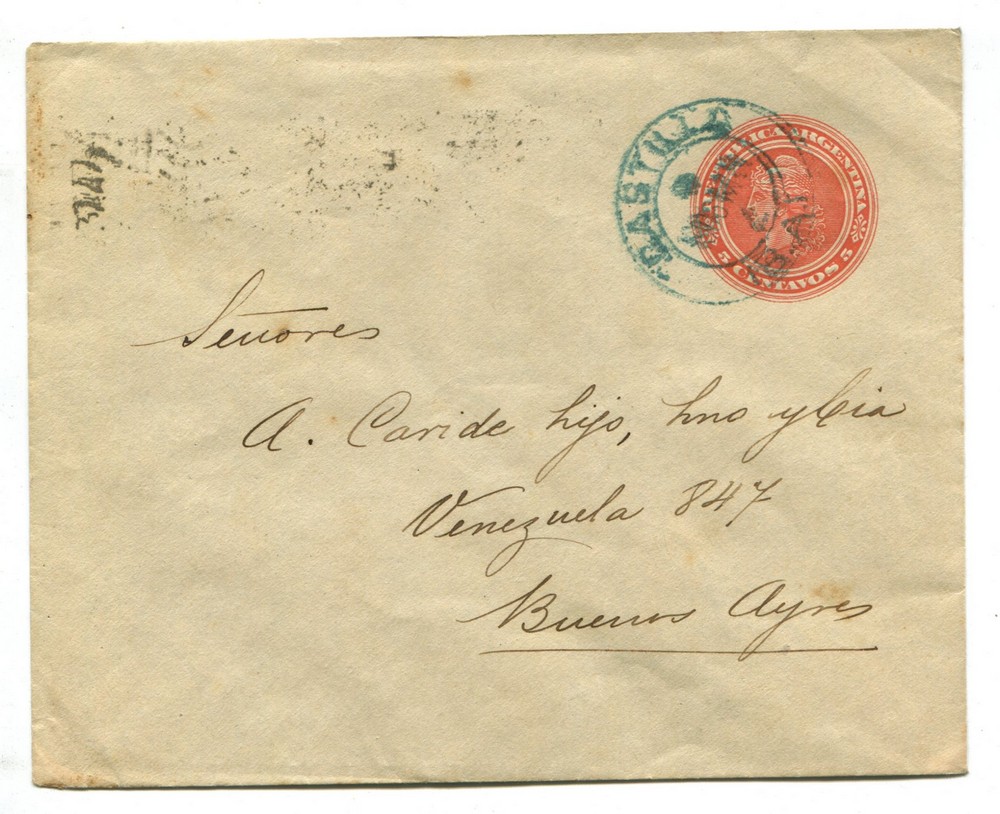 CASTILLA
REPUBLICA ARGENTINA
5 CENTAVOS 5
Señores
A. Caride hijo, hno y Cia
Venezuela 847
Buenos Ayres